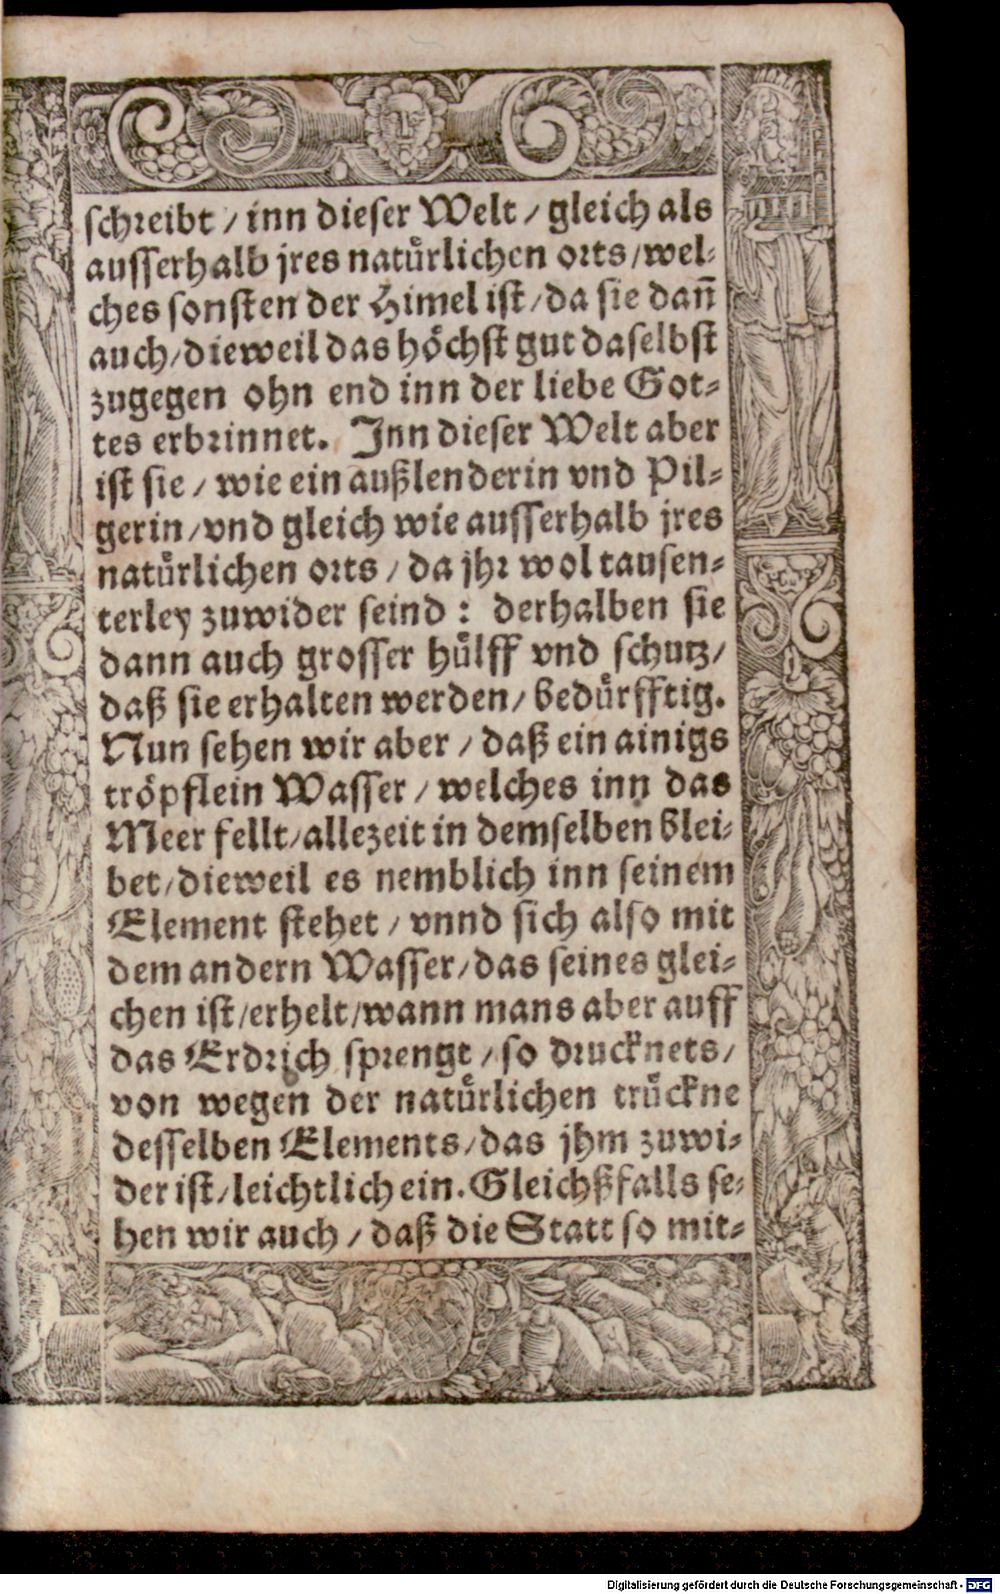 schreibt / inn dieser Welt / gleich als
ausserhalb jres natůrlichen orts / wel-
ches sonsten der Himel ist / da sie dañ
auch / dieweil das hôchst gut daselbst
zugegen ohn end inn der liebe Got-
tes erbrinnet. Inn dieser Welt aber
ist sie / wie ein außlenderin vnd Pil-
gerin / vnd gleich wie ausserhalb jres
natůrlichen orts / da jhr wol tausen-
terley zuwider seind : derhalben sie
dann auch grosser hůlff vnd schutz /
daß sie erhalten werden / bedůrfftig.
Nun sehen wir aber / daß ein ainigs
trôpflein Wasser / welches inn das
Meer fellt / allezeit in demselben blei-
bet / dieweil es nemblich inn seinem
Element stehet / vnnd sich also mit
dem andern Wasser / das seines glei-
chen ist / erhelt / wann mans aber auff
das Erdrich sprengt / so drucknets /
von wegen der natůrlichen trůckne
desselben Elements / das jhm zuwi-
der ist / leichtlich ein. Gleichßfalls se-
hen wir auch / daß die Statt so mit-
Digitalisierung gefördert durch die Deutsche Forschungsgemeinschaft - DFG